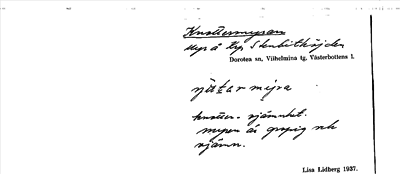 Knottermyran
myr å Krp. Stenbithöjden
Dorotea sn, Vilhelmina tg. Västerbottens l.
knotter. ojämnhet.
myren är gropig och
ojämn.
Lisa Lidberg 1937.